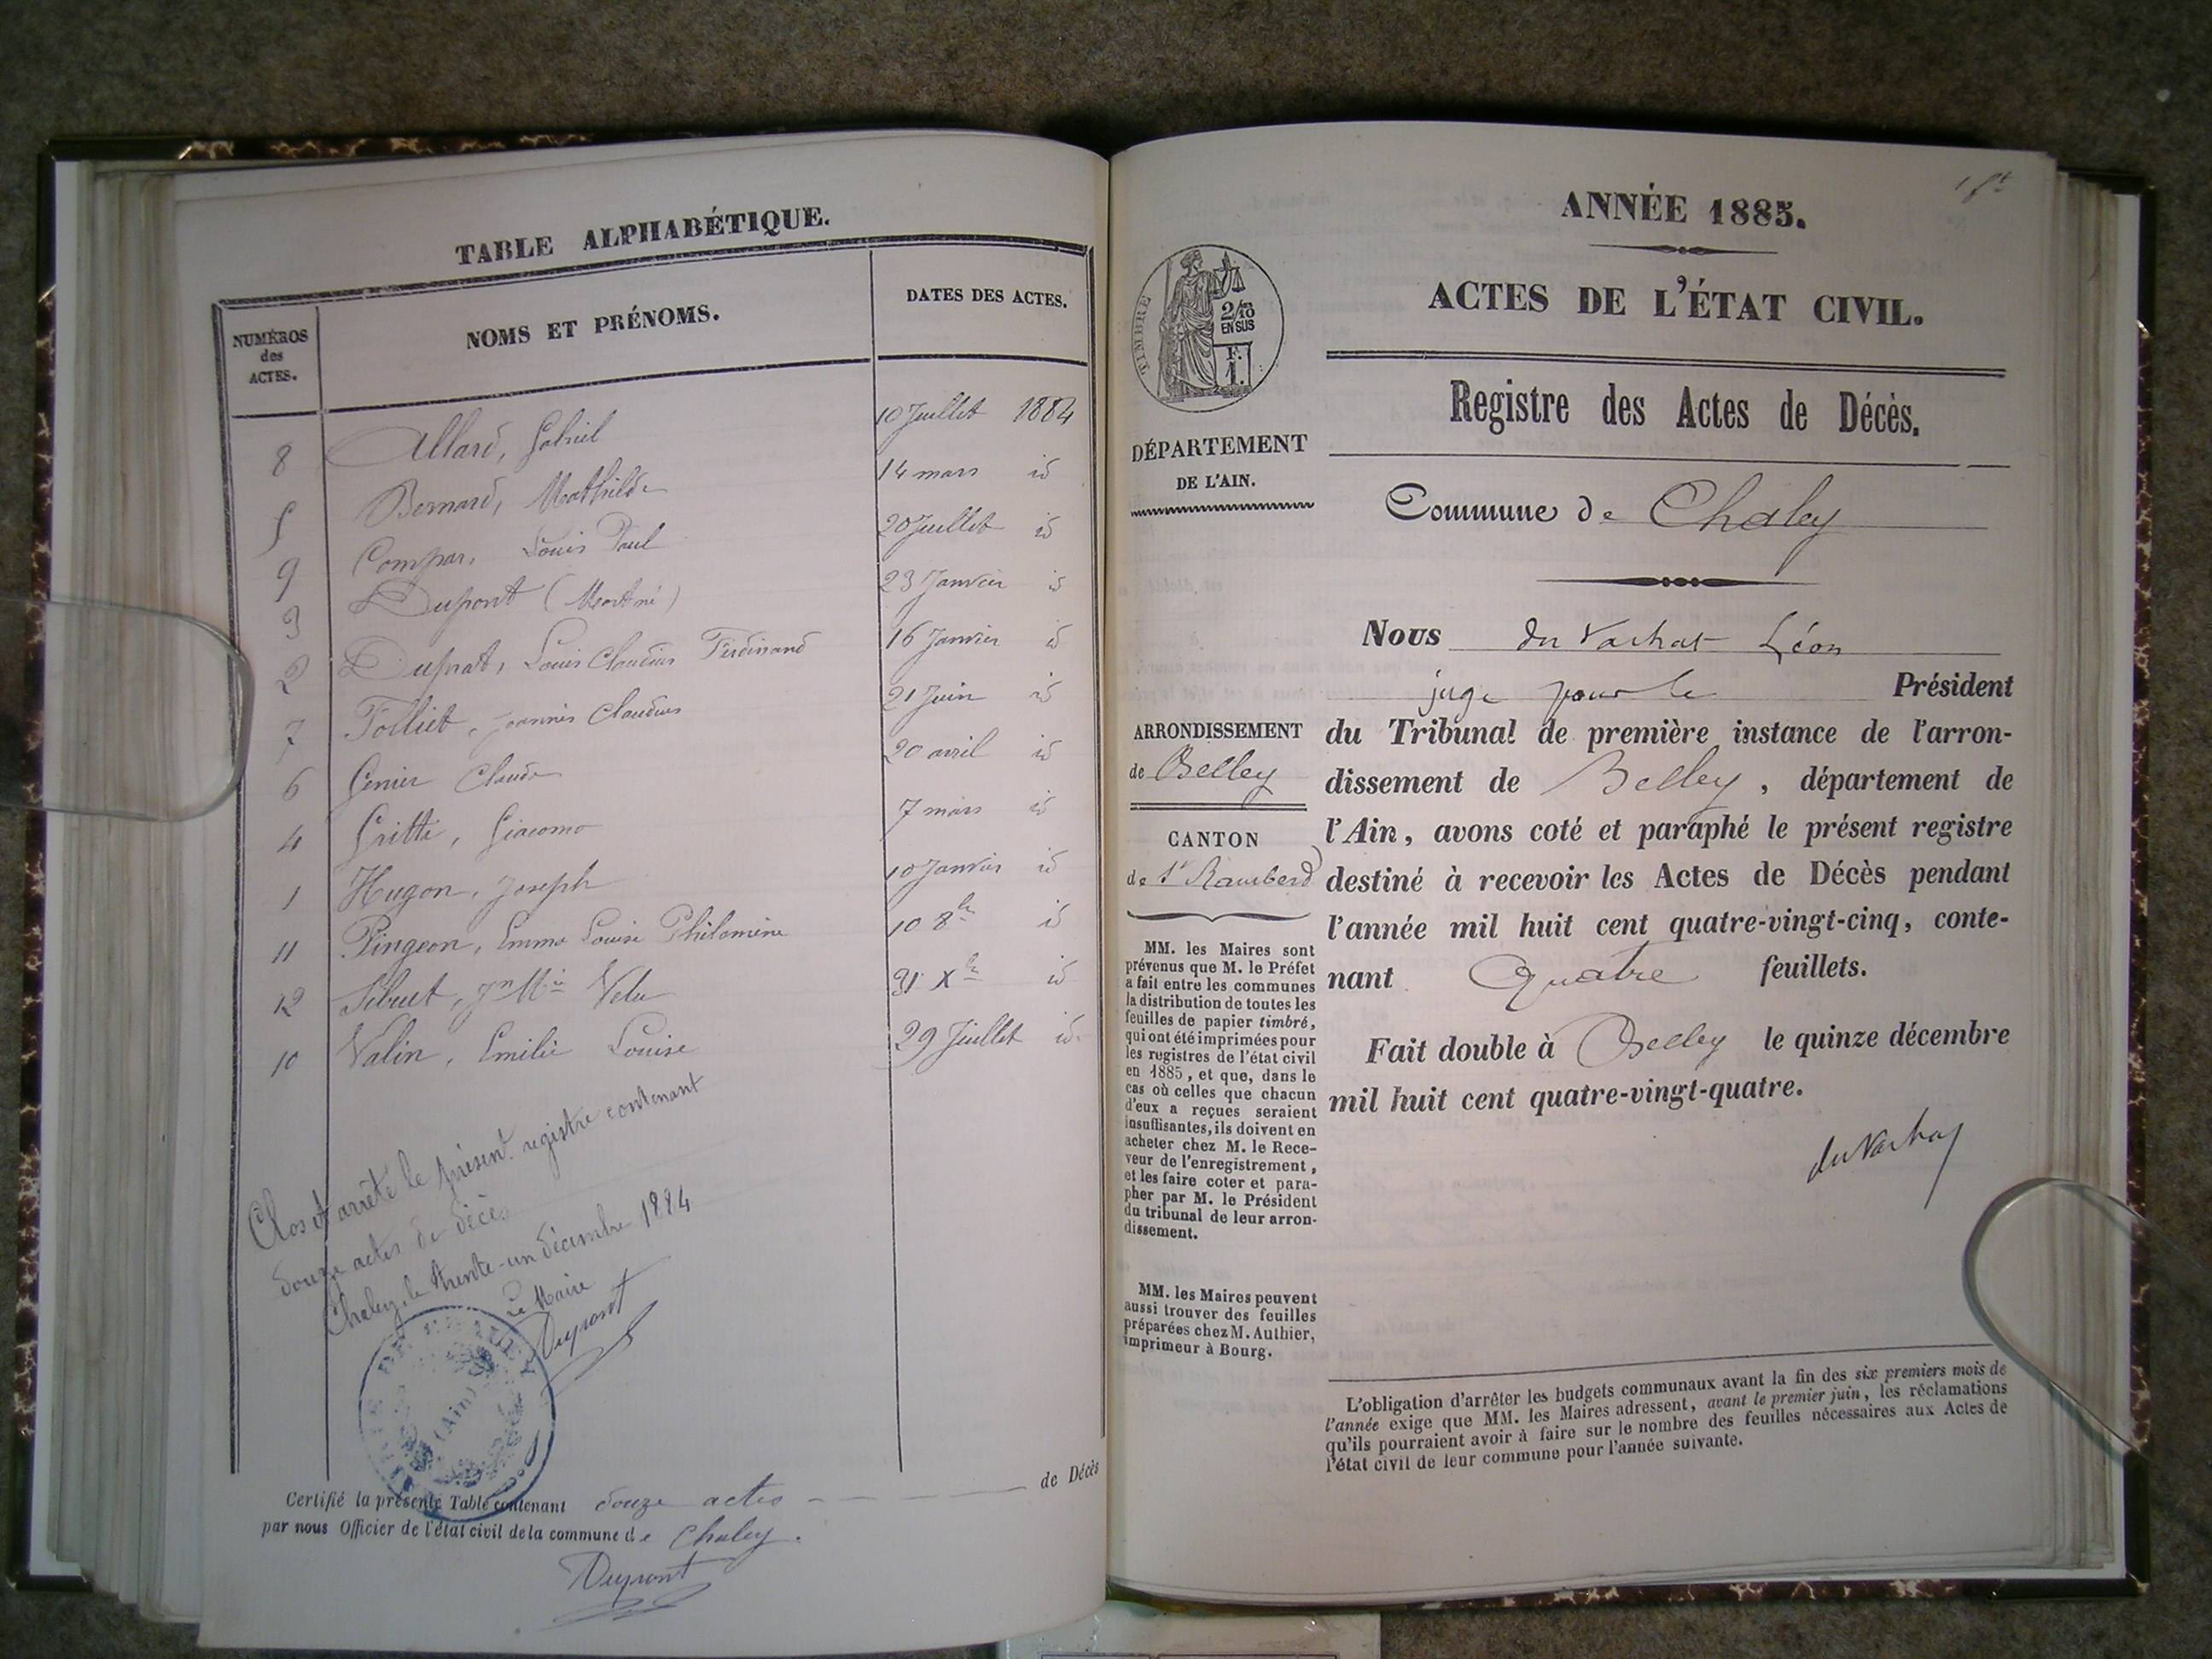 TABLE ALPHABÉTIQUE.
NUMÉROS des ACTES. NOMS ET PRÉNOMS. DATES DES ACTES.
8 Allard, Gabriel 10 Juillet 1884
5 Bernard, Mathilde 14 mars id
9 Compar, Louis Paul 20 Juillet id
3 Dupont (Mort né) 23 Janvier id
2 Duprat, Louis Claudius Ferdinand 16 Janvier id
7 Folliet, Joannès Claudius 21 Juin id
6 Genier Claude 20 avril id
4 Gritti, Giacomo 7 mars id
1 Hugon, Joseph 10 Janvier id
11 Pingeon, Emma Louise Philomène 10 8bre id
12 Sibuet, Jn Mie 31 Xbre id
10 Valin, Emilie Louise 29 Juillet id.
Clos et arrêté le présent registre contenant
douze actes de décès
Chaley, le trente-un décembre 1884
Le Maire
Dupont
(Ain)
Certifié la présente Table contenant douze actes de Décès
par nous Officier de l'état civil de la commune de Chaley.
Dupont
1 ft
ANNÉE 1885.
ACTES DE L'ÉTAT CIVIL.
TIMBRE
2/10
EN SUS
F.
1.
Registre des Actes de Décès.
DÉPARTEMENT
DE L'AIN.
Commune de Chaley
Nous du Vachat Léon
juge pour le Président
du Tribunal de première instance de l'arron-
dissement de Belley, département de
l'Ain, avons coté et paraphé le présent registre
destiné à recevoir les Actes de Décès pendant
l'année mil huit cent quatre-vingt-cinq, conte-
nant Quatre feuillets.
Fait double à Belley le quinze décembre
mil huit cent quatre-vingt-quatre.
du Vachat
ARRONDISSEMENT
de Belley
CANTON
de St Rambert
MM. les Maires sont
prévenus que M. le Préfet
a fait entre les communes
la distribution de toutes les
feuilles de papier timbré,
qui ont été imprimées pour
les registres de l'état civil
en 1885, et que, dans le
cas où celles que chacun
d'eux a reçues seraient
insuffisantes, ils doivent en
acheter chez M. le Rece-
veur de l'enregistrement,
et les faire coter et para-
pher par M. le Président
du tribunal de leur arron-
dissement.
MM. les Maires peuvent
aussi trouver des feuilles
préparées chez M. Authier,
imprimeur à Bourg.
L'obligation d'arrêter les budgets communaux avant la fin des six premiers mois de
l'année exige que MM. les Maires adressent, avant le premier juin, les réclamations
qu'ils pourraient avoir à faire sur le nombre des feuilles nécessaires aux Actes de
l'état civil de leur commune pour l'année suivante.